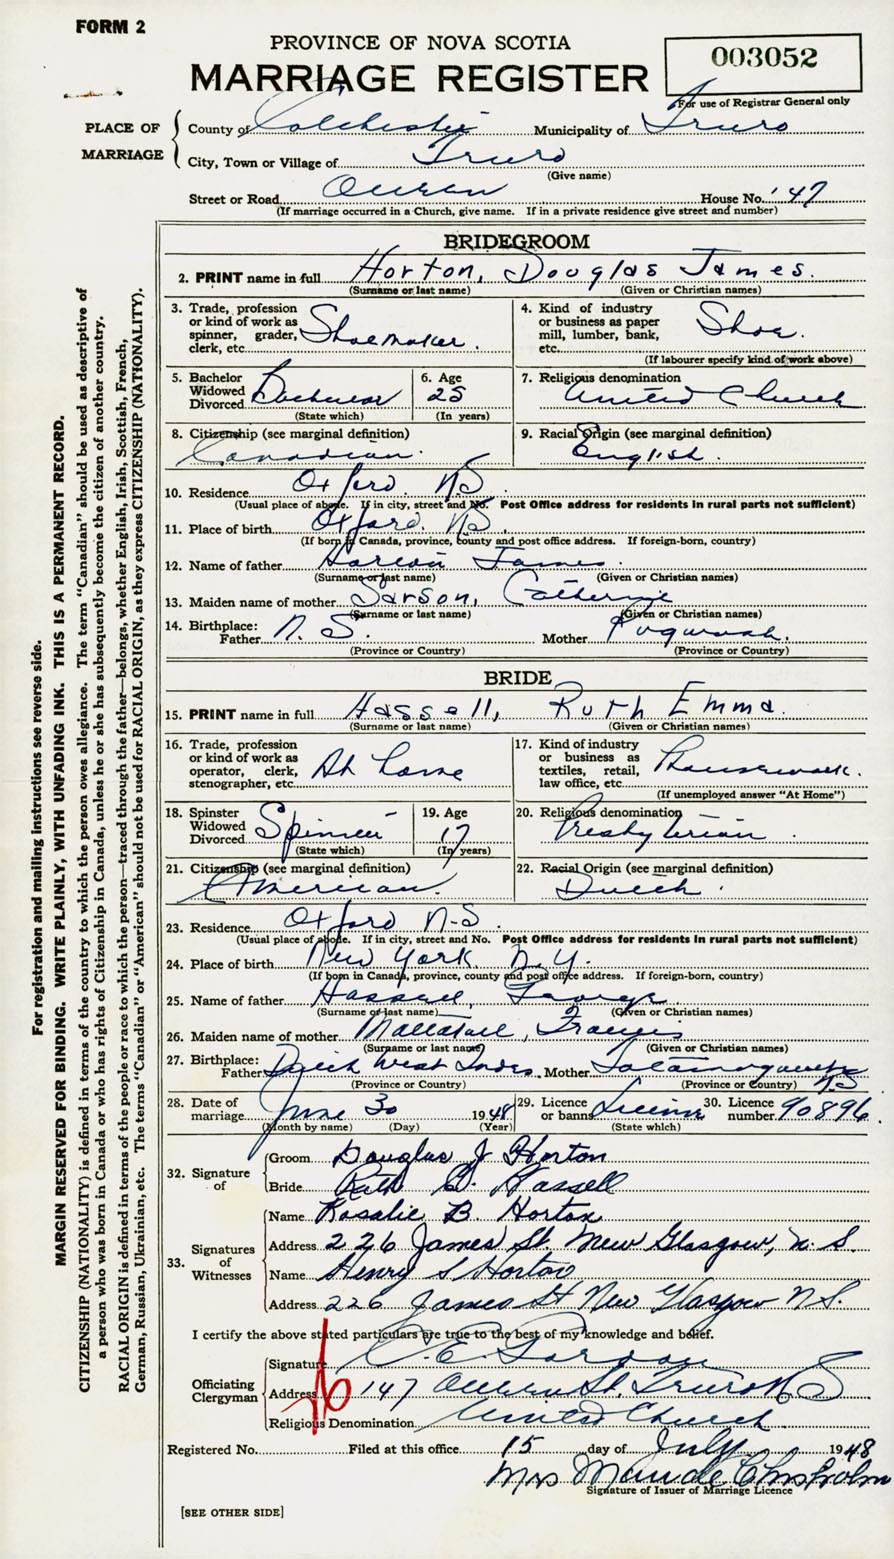 FORM 2
PROVINCE OF NOVA SCOTIA
MARRIAGE REGISTER
003052
For use of Registrar General only
PLACE OF MARRIAGE
County of Colchester Municipality of Truro
City, Town or Village of Truro
(Give name)
Street or Road Queen House No. 147
(If marriage occurred in a Church, give name. If in a private residence give street and number)
BRIDEGROOM
2. PRINT name in full Horton, Douglas James.
(Surname or last name) (Given or Christian names)
3. Trade, profession or kind of work as spinner, grader, clerk, etc. Shoemaker.
4. Kind of industry or business as paper mill, lumber, bank, etc. Shoe.
(If labourer specify kind of work above)
5. Bachelor Widowed Divorced Bachelor
(State which)
6. Age 25
(In years)
7. Religious denomination United Church
8. Citizenship (see marginal definition) Canadian.
9. Racial Origin (see marginal definition) English.
10. Residence Oxford N.S.
(Usual place of abode. If in city, street and No. Post Office address for residents in rural parts not sufficient)
11. Place of birth Oxford. N.S.
(If born in Canada, province, county and post office address. If foreign-born, country)
12. Name of father Horton James.
(Surname or last name) (Given or Christian names)
13. Maiden name of mother Sarson, Catherine
(Surname or last name) (Given or Christian names)
14. Birthplace: Father N.S. Mother Pugwash.
(Province or Country) (Province or Country)
BRIDE
15. PRINT name in full Hassell, Ruth Emma.
(Surname or last name) (Given or Christian names)
16. Trade, profession or kind of work as operator, clerk, stenographer, etc. At home
17. Kind of industry or business as textiles, retail, law office, etc. Housework.
(If unemployed answer "At Home")
18. Spinster Widowed Divorced Spinster
(State which)
19. Age 17
(In years)
20. Religious denomination Presbyterian.
21. Citizenship (see marginal definition) American.
22. Racial Origin (see marginal definition) Dutch.
23. Residence Oxford N.S.
(Usual place of abode. If in city, street and No. Post Office address for residents in rural parts not sufficient)
24. Place of birth New York. N.Y.
(If born in Canada, province, county and post office address. If foreign-born, country)
25. Name of father Hassell, George
(Surname or last name) (Given or Christian names)
26. Maiden name of mother Frances
(Surname or last name) (Given or Christian names)
27. Birthplace: Father Dutch West Indes. Mother Tatamagouche N.S
(Province or Country) (Province or Country)
28. Date of marriage June 30 1948
(Month by name) (Day) (Year)
29. Licence or banns License
(State which)
30. Licence number 90896.
32. Signature of
Groom Douglas J Horton
Bride Ruth E. Hassell
33. Signatures of Witnesses
Name Rosalie B. Horton
Address 226 James St. New Glasgow, N.S.
Name Henry S Horton
Address 226 James St New Glasgow N.S.
I certify the above stated particulars are true to the best of my knowledge and belief.
Officiating Clergyman
Signature C. E. Gordon
Address 147 Queen St. Truro N S
Religious Denomination United Church.
Registered No. Filed at this office 15 day of July 1948
Mrs Maude Chisholm
Signature of Issuer of Marriage Licence
[SEE OTHER SIDE]
For registration and mailing instructions see reverse side.
MARGIN RESERVED FOR BINDING. WRITE PLAINLY, WITH UNFADING INK. THIS IS A PERMANENT RECORD.
CITIZENSHIP (NATIONALITY) is defined in terms of the country to which the person owes allegiance. The term "Canadian" should be used as descriptive of
a person who was born in Canada or who has rights of Citizenship in Canada, unless he or she has subsequently become the citizen of another country.
RACIAL ORIGIN is defined in terms of the people or race to which the person—traced through the father—belongs, whether English, Irish, Scottish, French,
German, Russian, Ukrainian, etc. The terms "Canadian" or "American" should not be used for RACIAL ORIGIN, as they express CITIZENSHIP (NATIONALITY).